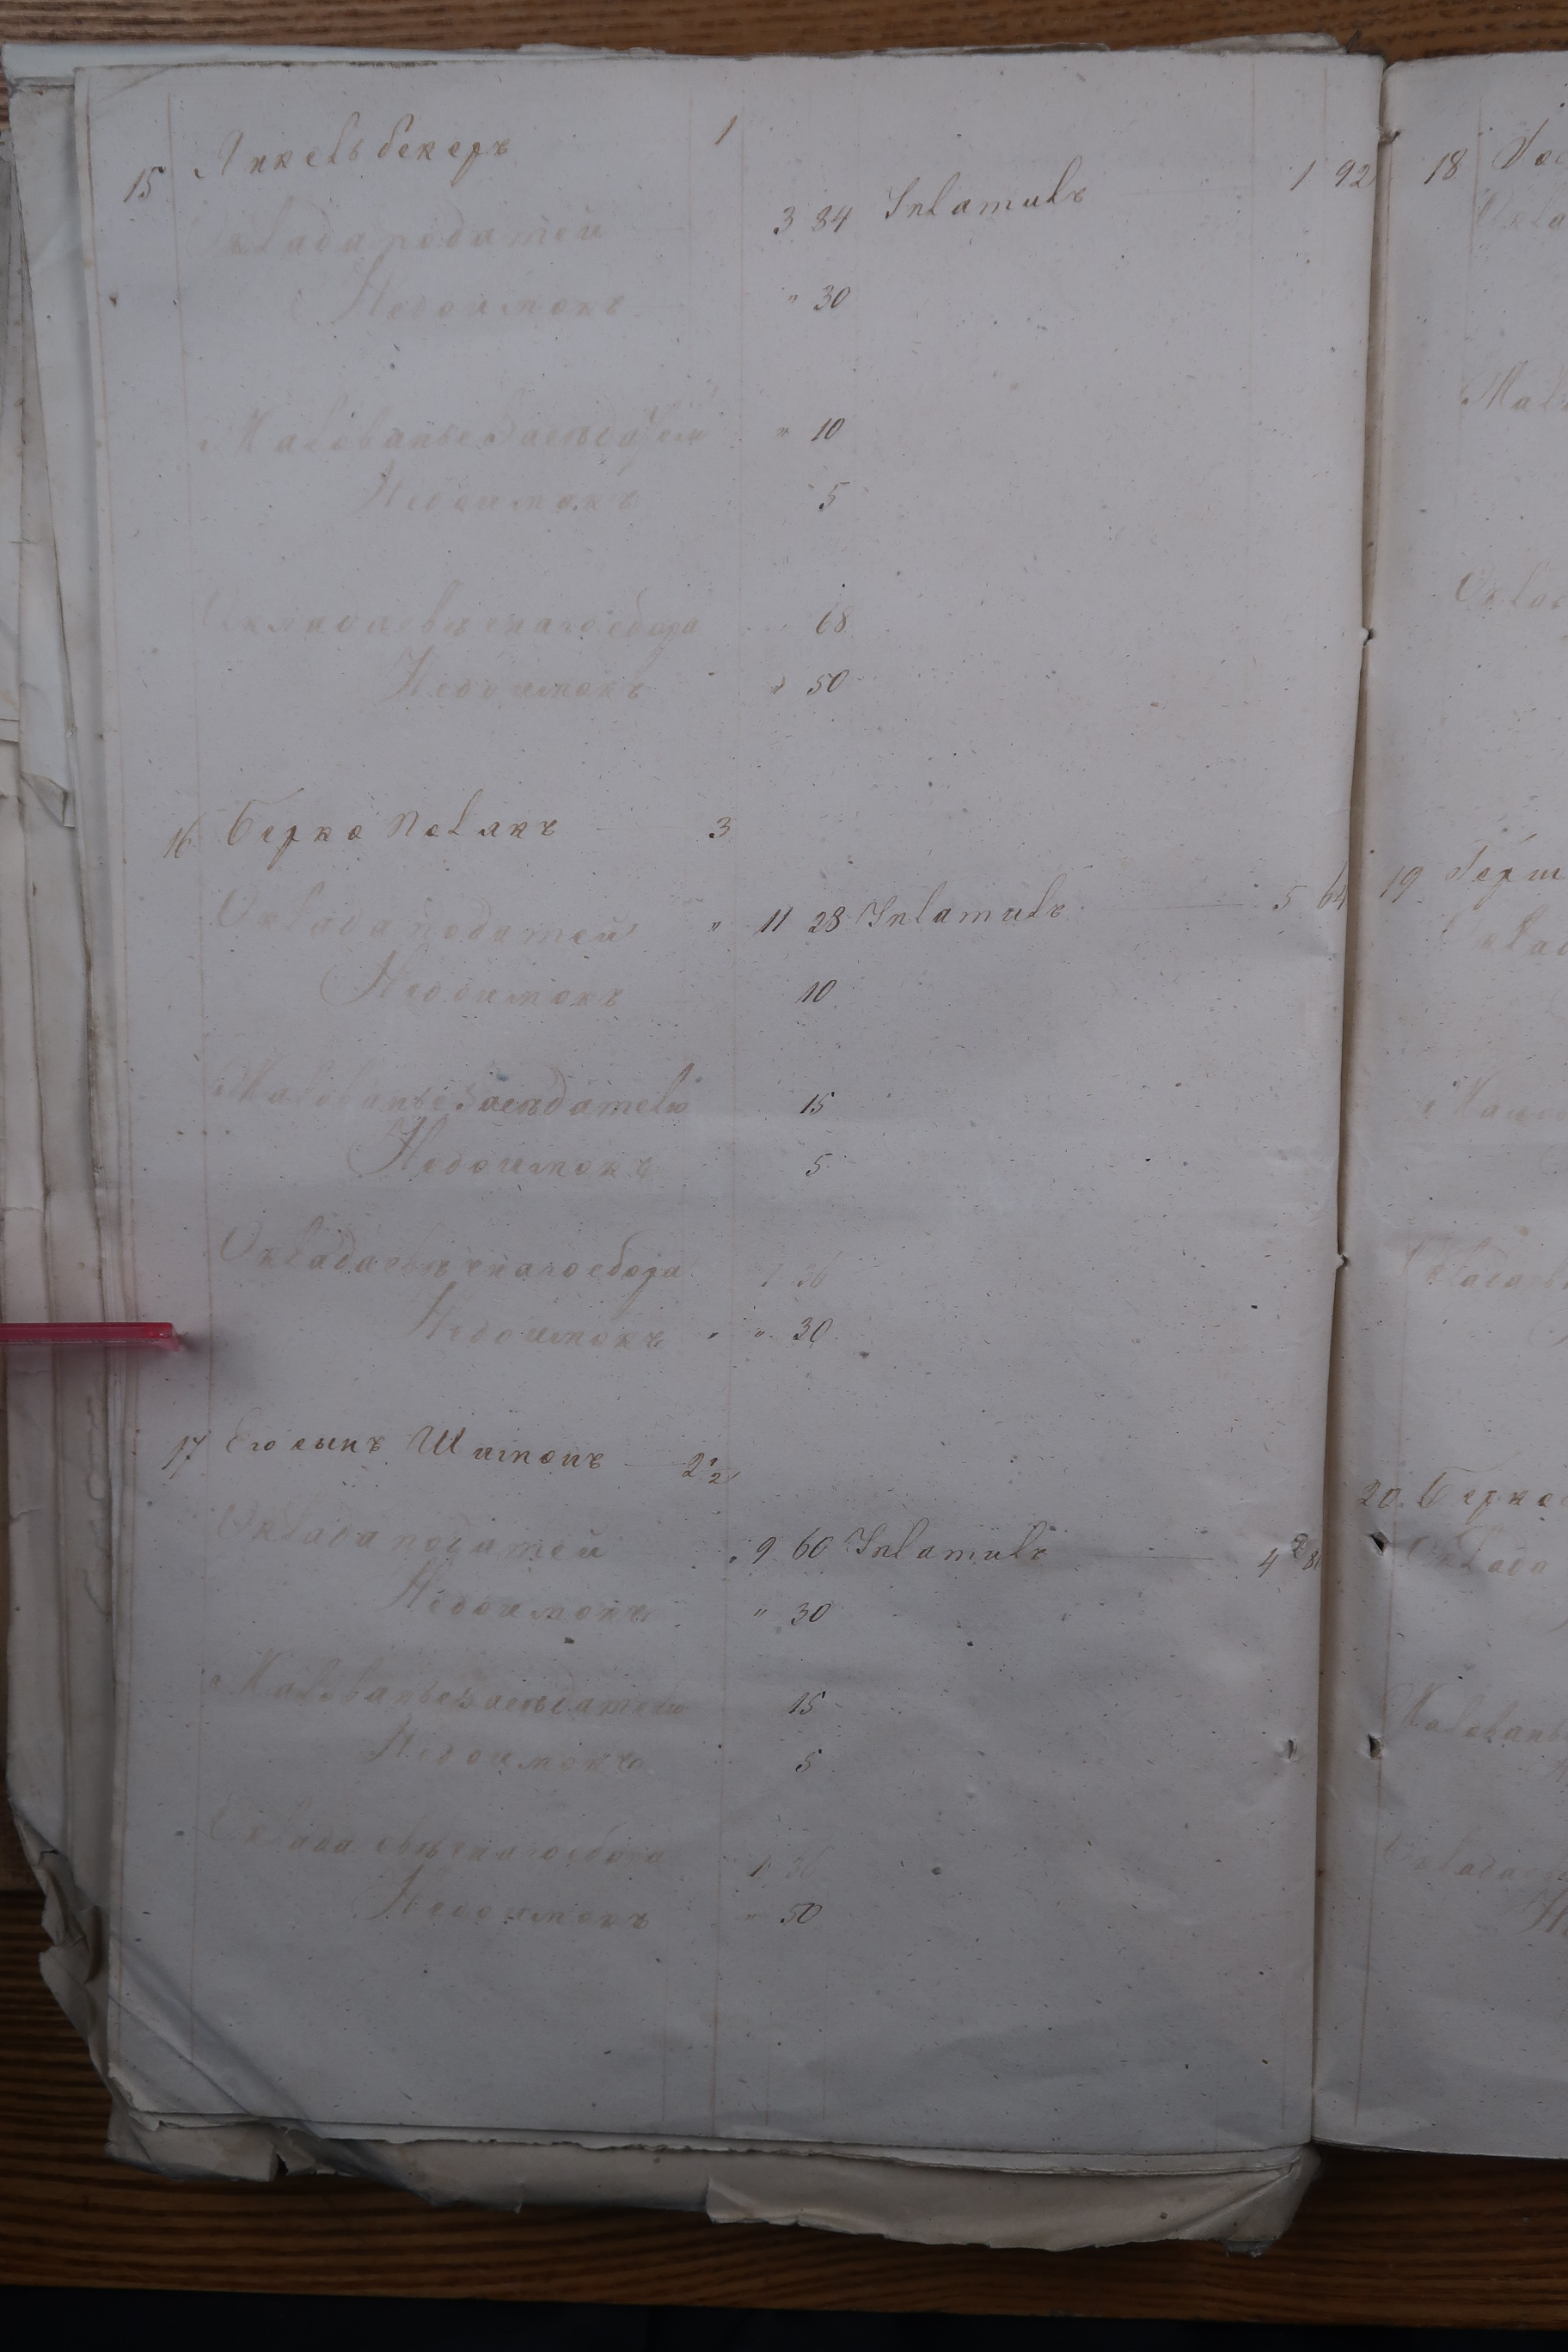 15 Янкель бекеръ 1
Оклада податей 3 84 Уплатилъ 1 92
Недоимокъ " 30
Жалованье Засѣдателю " 10
Недоимокъ 5
Оклада свѣчнаго сбора 68
Недоимокъ " 50
16 Берко Полякъ 3
Оклада податей " 11 28 Уплатилъ 5 64
Недоимокъ 10
Жалованье Засѣдателю 15
Недоимокъ 5
Оклада свѣчнаго сбора 1 36
Недоимокъ " " 30
17 Его сынъ Шимонъ 2 1/2
Оклада податей " 9 60 Уплатилъ 4 80
Недоимокъ " 30
Жалованье Засѣдателю 15
Недоимокъ 5
Оклада свѣчнаго сбора 1 36
Недоимокъ " 50
18
Окла
Мал
Окла
19 Герш
Оклад
Оклада
20 Берко
Оклада
Жаловань
Оклада
Н